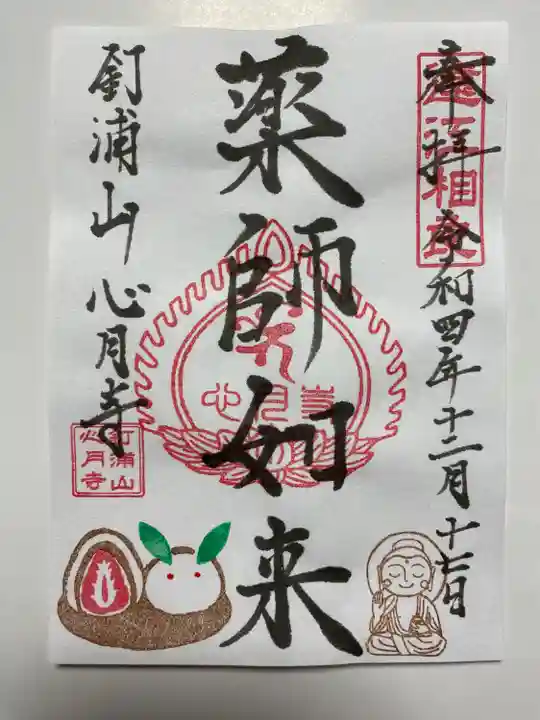 奉拝 令和四年十二月十七日
薬師如来
釘浦山心月寺
心月寺
釘浦山
心月寺